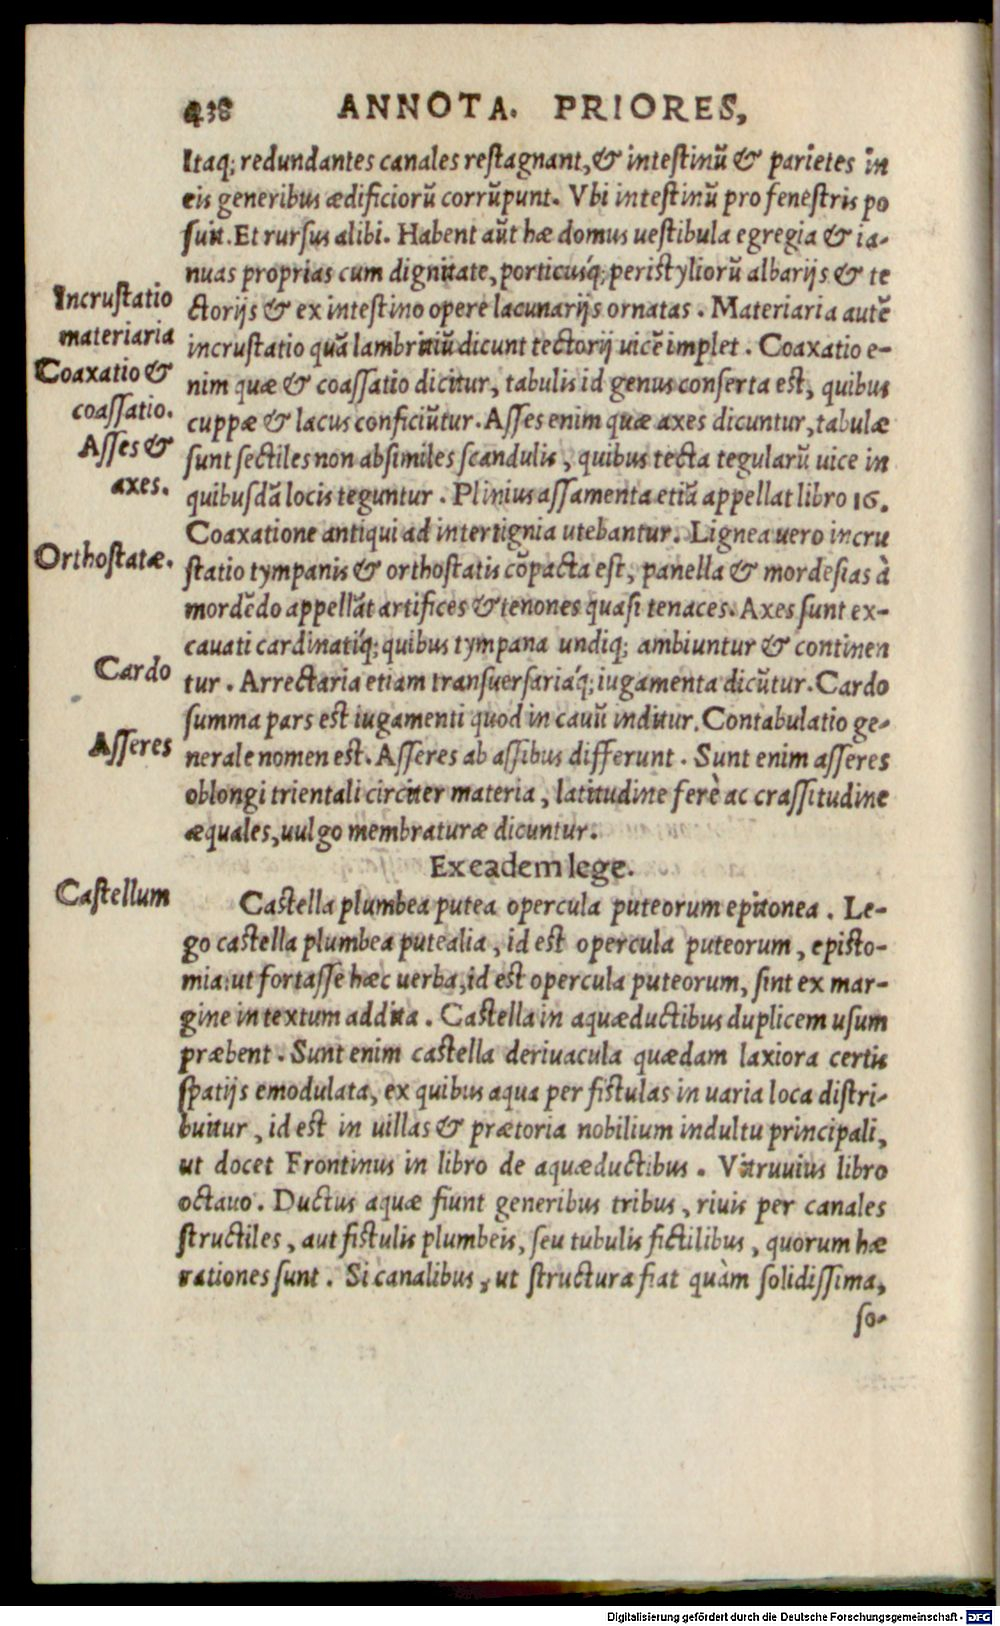 438 ANNOTA. PRIORES,
Itaq; redundantes canales restagnant, & intestinū & parietes in
eis generibus ædificiorū corrūpunt. Vbi intestinū pro fenestris po
suit. Et rursus alibi. Habent aūt hæ domus uestibula egregia & ia-
nuas proprias cum dignitate, porticusq́; peristyliorū albarijs & te
Incrustatio
ctorijs & ex intestino opere lacunarijs ornatas. Materiaria autē
materiaria
incrustatio quā lambritiū dicunt tectorij uicē implet. Coaxatio e-
Coaxatio &
nim quæ & coassatio dicitur, tabulis id genus conserta est, quibus
coassatio.
cuppæ & lacus conficiūtur. Asses enim quæ axes dicuntur, tabulæ
Asses &
sunt sectiles non absimiles scandulis, quibus tecta tegularū uice in
axes.
quibusdā locis teguntur. Plinius assamenta etiā appellat libro 16.
Coaxatione antiqui ad intertignia utebantur. Lignea uero incru
Orthostatæ.
statio tympanis & orthostatis cōpacta est, panella & mordesias à
mordēdo appellāt artifices & tenones quasi tenaces. Axes sunt ex-
cauati cardinatiq́; quibus tympana undiq; ambiuntur & continen
Cardo
tur. Arrectaria etiam transuersariáq; iugamenta dicūtur. Cardo
summa pars est iugamenti quod in cauū inditur. Contabulatio ge-
Asseres
nerale nomen est. Asseres ab assibus differunt. Sunt enim asseres
oblongi trientali circiter materia, latitudine ferè ac crassitudine
æquales, uulgo membraturæ dicuntur.
Ex eadem lege.
Castellum
Castella plumbea putea opercula puteorum epitonea. Le-
go castella plumbea putealia, id est opercula puteorum, episto-
mia: ut fortasse hæc uerba, id est opercula puteorum, sint ex mar-
gine in textum addita. Castella in aquæductibus duplicem usum
præbent. Sunt enim castella deriuacula quædam laxiora certis
spatijs emodulata, ex quibus aqua per fistulas in uaria loca distri-
buitur, id est in uillas & prætoria nobilium indultu principali,
ut docet Frontinus in libro de aquæductibus. Vitruuius libro
octauo. Ductus aquæ fiunt generibus tribus, riuis per canales
structiles, aut fistulis plumbeis, seu tubulis fictilibus, quorum hæ
rationes sunt. Si canalibus, ut structura fiat quàm solidissima,
so-
Digitalisierung gefördert durch die Deutsche Forschungsgemeinschaft - DFG